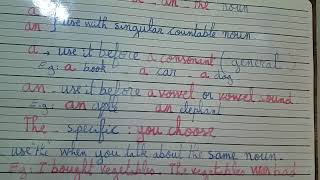 a - an - the noun
a
an } use with singular countable noun
a → use it before a consonant (general)
Eg: a book a car a dog
an - use it before a vowel or vowel sound
Eg: an aple an elephant
The - specific : you choose
use "the" when you talk about the same noun.
Eg: I bought vegetables. The vegetables was bad